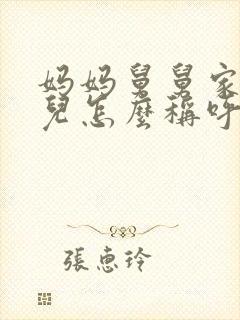 妈妈舅舅家
兒怎麼稱呼
張惠玲